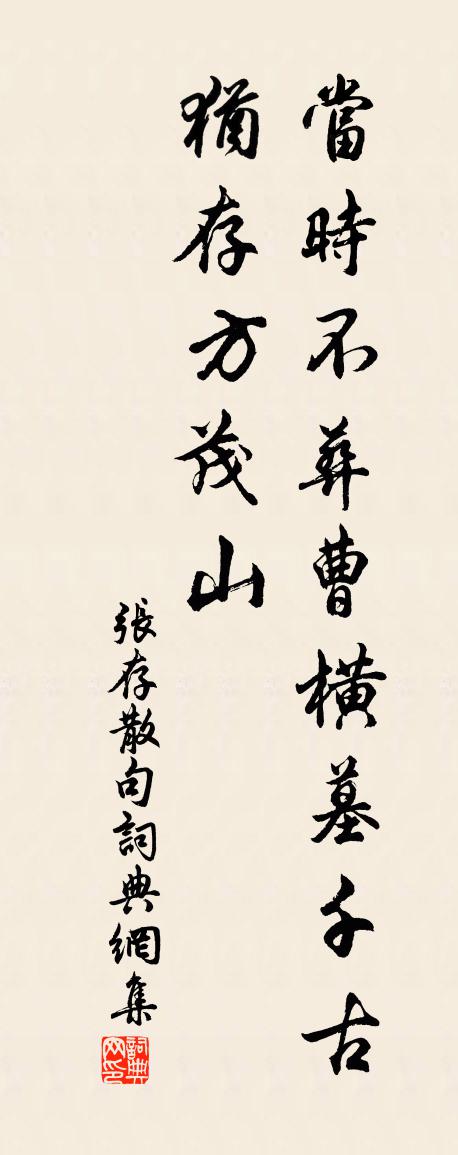 當時不葬曹橫墓千古
猶存方茂山
張存散句詞典網集
詞典网印